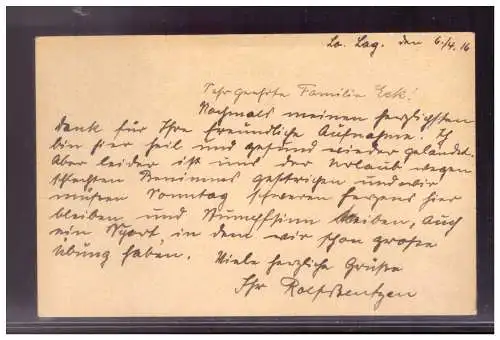 Lo. Lag. den 6./4. 16
Sehr geehrte Familie Eck!
Nochmals meinen herzlichsten
Dank für Ihre freundliche Aufnahme! Ich
bin hier heil und gesund wieder gelandet.
Aber leider ist uns der Urlaub wegen
schlechten Benimms gestrichen und wir
müssen Sonntag schweren Herzens hier
bleiben und Stumpfsinn treiben, auch
ein Sport, in dem wir schon große
Übung haben. Viele herzliche Grüße
Ihr Rolf Bentzen